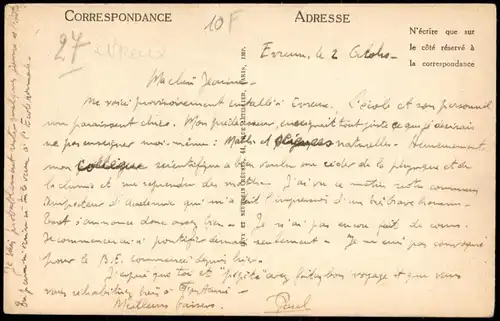 CORRESPONDANCE
10F
ADRESSE
N'écrire que sur
le côté réservé à
la correspondance
27
EVREUX
Evreux, le 2 Octobre
Ma chère Jeanine
Me voici provisoirement installé à Evreux. L'école et son personnel
me paraissent chics. Mon prédécesseur enseignait tout juste ce que je désirais
ne pas enseigner moi-même : Maths et Sciences naturelles. Heureusement,
mon collègue scientifique a bien voulu me céder de la physique et de
la chimie et me reprendre des maths. J'ai vu ce matin notre commun
inspecteur d'Académie qui m'a fait l'impression d'un très brave homme.
Tout s'annonce donc assez bien - Je n'ai pas encore fait de cours.
Je commencerai à demain seulement - Je ne suis pas convoqué
pour le B.E. commencé depuis hier.
J'espère que toi et "pépète" avez fait bon voyage et que vous
vous réhabituez bien à
Meilleurs baisers.
Paul
LEVY ET NEURDEIN RÉUNIS, 44, RUE LETELLIER, PARIS, IMP.
Je suis probablement ici quelques jours